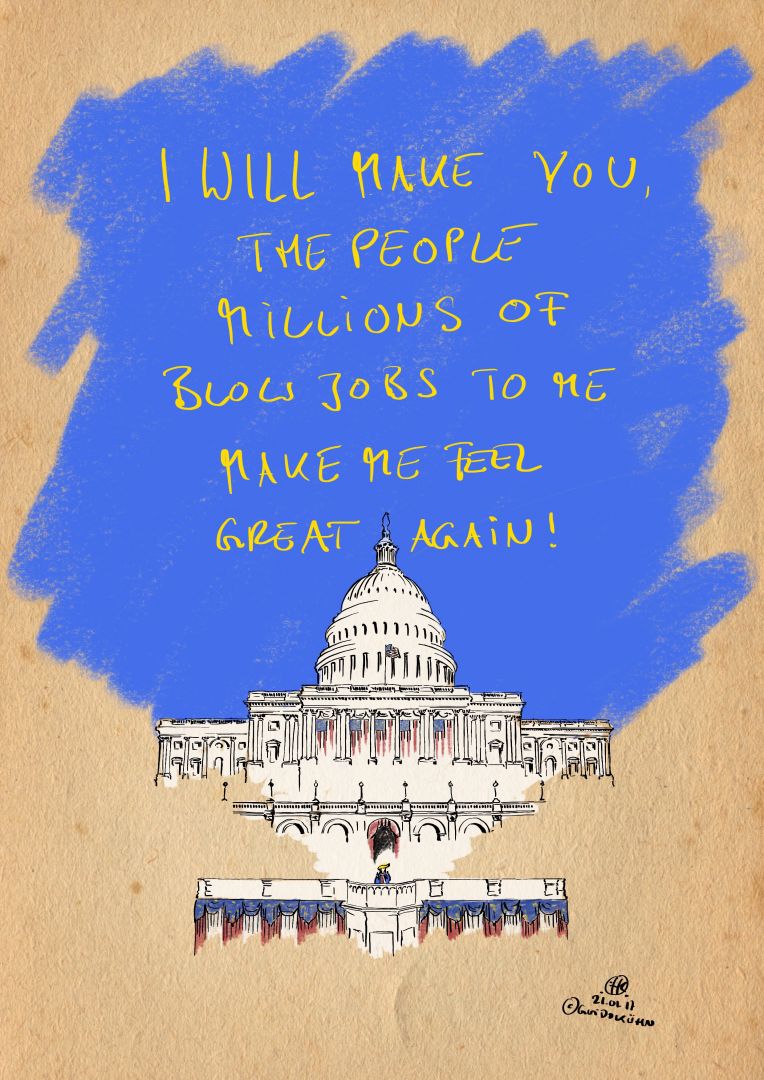 I WILL MAKE YOU,
THE PEOPLE
MILLIONS OF
BLOW JOBS TO ME
MAKE ME FEEL
GREAT AGAIN!
21.01.17
©GUIDOKÜHN